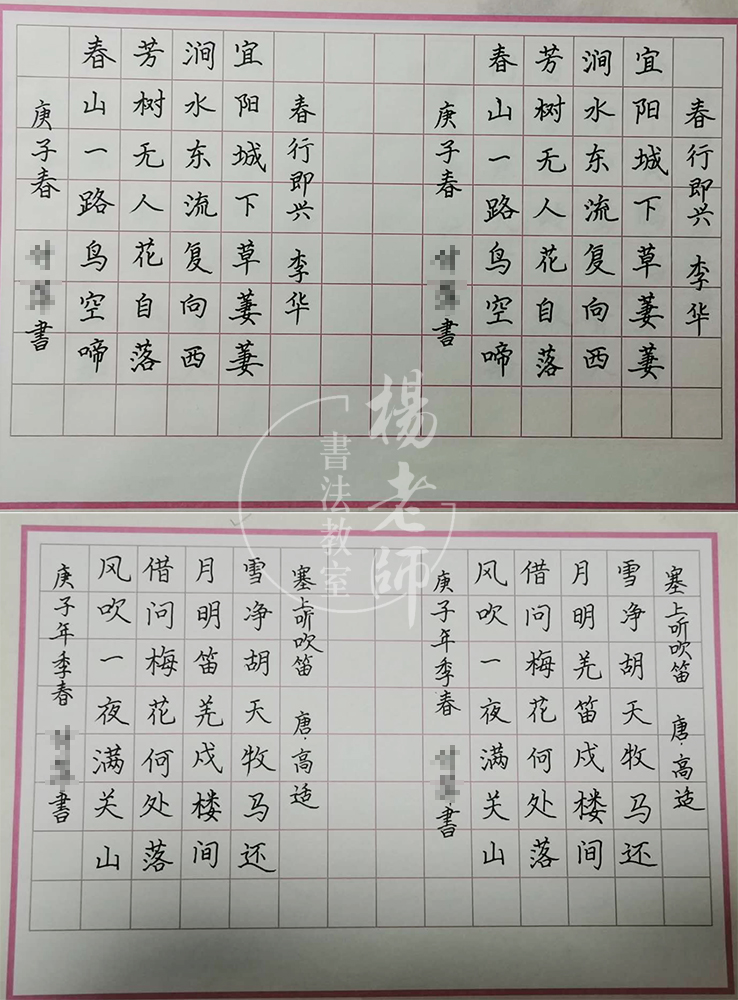 春行即兴 李华
宜阳城下草萋萋
涧水东流复向西
芳树无人花自落
春山一路鸟空啼
庚子春 書
春行即兴 李华
宜阳城下草萋萋
涧水东流复向西
芳树无人花自落
春山一路鸟空啼
庚子春 書
楊老師
書法教室
塞上听吹笛 唐·高适
雪净胡天牧马还
月明羌笛戍楼间
借问梅花何处落
风吹一夜满关山
庚子年季春 書
塞上听吹笛 唐·高适
雪净胡天牧马还
月明笛羌戍楼间
借问梅花何处落
风吹一夜满关山
庚子年季春 書